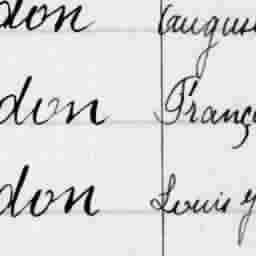 don August
don Franç
don Louis y